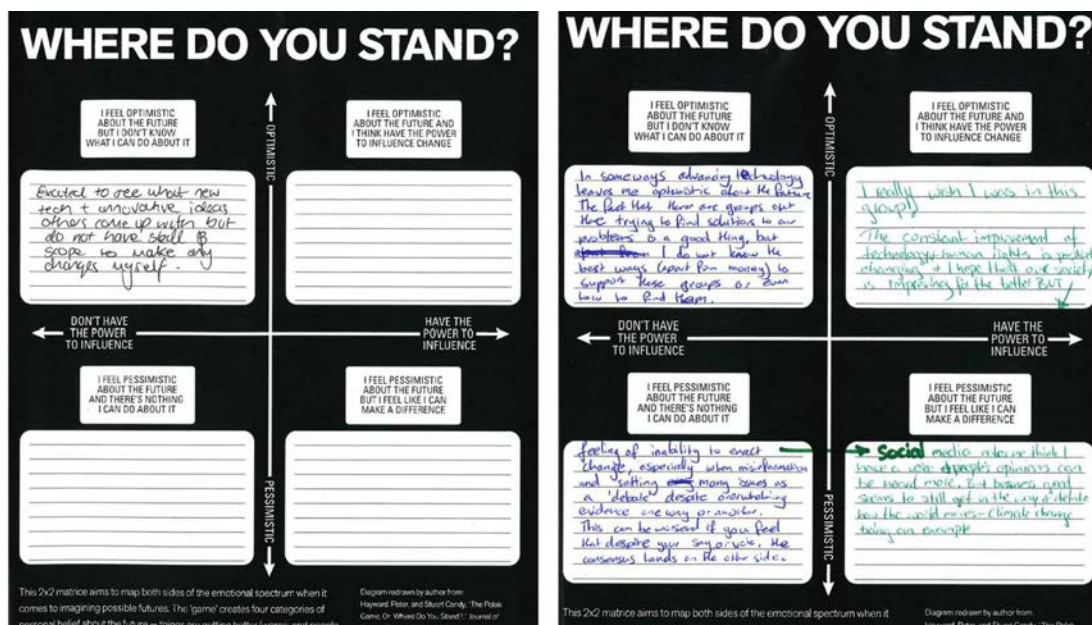 WHERE DO YOU STAND?
I FEEL OPTIMISTIC
ABOUT THE FUTURE
BUT I DON'T KNOW
WHAT I CAN DO ABOUT IT
OPTIMISTIC
I FEEL OPTIMISTIC
ABOUT THE FUTURE AND
I THINK HAVE THE POWER
TO INFLUENCE CHANGE
Excited to see what new
tech + innovative ideas
others come up with but
do not have skill
scope to make any
changes myself.
DON'T HAVE
THE POWER
TO INFLUENCE
HAVE THE
POWER TO
INFLUENCE
I FEEL PESSIMISTIC
ABOUT THE FUTURE
AND THERE'S NOTHING
I CAN DO ABOUT IT
I FEEL PESSIMISTIC
ABOUT THE FUTURE
BUT I FEEL LIKE I CAN
MAKE A DIFFERENCE
PESSIMISTIC
This 2x2 matrice aims to map both sides of the emotional spectrum when it
comes to imagining possible futures. The 'game' creates four categories of
personal belief about the future – things are getting better/worse; and people
Diagram redrawn by author from:
Hayward, Peter, and Stuart Candy, "The Polak
Game, Or: Where Do You Stand?," Journal of
WHERE DO YOU STAND?
I FEEL OPTIMISTIC
ABOUT THE FUTURE
BUT I DON'T KNOW
WHAT I CAN DO ABOUT IT
OPTIMISTIC
I FEEL OPTIMISTIC
ABOUT THE FUTURE AND
I THINK HAVE THE POWER
TO INFLUENCE CHANGE
In someways advancing technology
leaves me optimistic about the future
The fact that there are groups out
there trying to find solutions to our
problems is a good thing, but
I do not know the
best ways (apart from money) to
support these groups or even
how to find them.
I really wish I was in this
group!
The constant improvement of
technology + human rights is
changing + I hope that our society
is improving for the better BUT
DON'T HAVE
THE POWER
TO INFLUENCE
HAVE THE
POWER TO
INFLUENCE
I FEEL PESSIMISTIC
ABOUT THE FUTURE
AND THERE'S NOTHING
I CAN DO ABOUT IT
I FEEL PESSIMISTIC
ABOUT THE FUTURE
BUT I FEEL LIKE I CAN
MAKE A DIFFERENCE
feeling of inability to enact
change, especially when misinformation
and setting many issues as
a 'debate' despite overwhelming
evidence one way or another.
This can be worsened if you feel
that despite your say or vote, the
consensus lands on the other side.
Social media makes me think I
have a voice + people's opinions can
be heard more. But business greed
seems to still get in the way & debate
how the world moves - climate change
being an example
PESSIMISTIC
This 2x2 matrice aims to map both sides of the emotional spectrum when it
Diagram redrawn by author from:
Hayward, Peter, and Stuart Candy, "The Polak